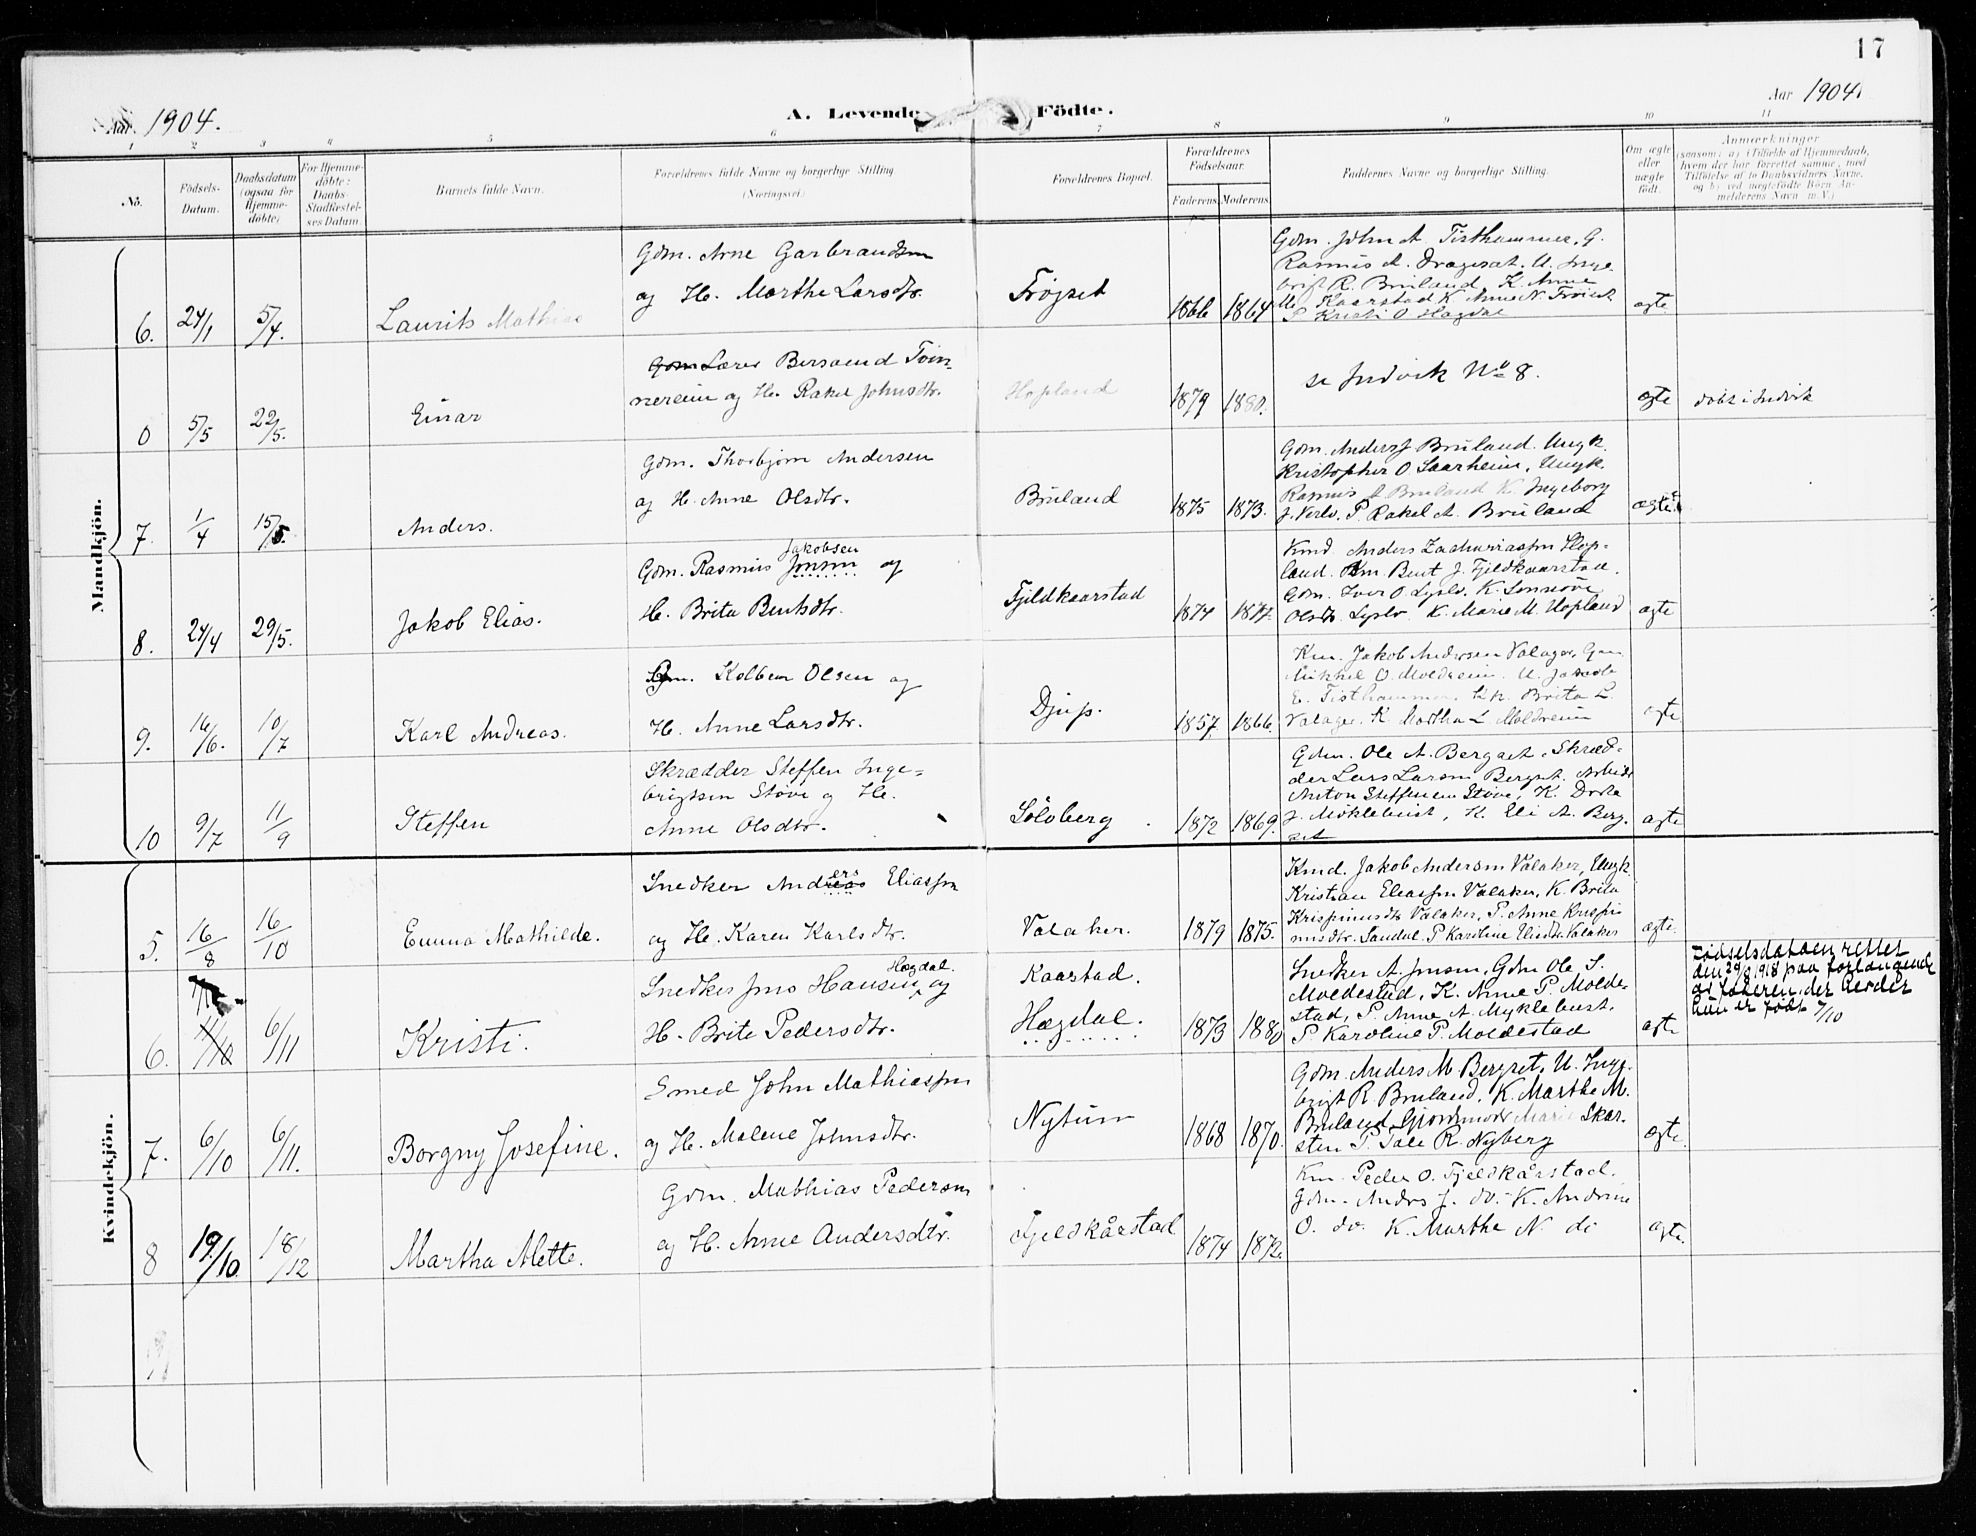 17
Aar 1904. A. Levende Födte. Aar 1904
1 2 3 4 5 6 7 8 9 10 11
No.
Födsels-Datum.
Daabsdatum (ogsaa for Hjemme-döbte)
For Hjemme-döbte: Daabs-Stadfæstel-ses Datum.
Barnets fulde Navn.
Forældrenes fulde Navne og borgerlige Stilling (Næringsvei)
Forældrenes Bopæl.
Forældrenes Födselsaar.
Faderens Moderens
Faddernes Navne og borgerlige Stilling.
Om ægte eller uægte födt.
Anmærkninger
(saasom: a) i Tilfælde af Hjemmedaab,
hvem der har forrettet samme, med
Tilföielse af to Daabsvidners Navne,
og b) ved uægtefödte Börn An-
melderens Navn m. V.)
Mandkjön.
6. 24/1 5/4. Laurits Mathias
Gdm. Arne Garbrandsen
og H. Marthe Larsdtr.
Frøjset 1866 1864
Gdm. John A Tisthammer, G.
Rasmus A. Dragesæt. U. Inge-
brigt R. Bruland K. Anne
M. Kaarstad K Anne N. Frøiset
P Kristi O Hogdal
ægte
0 5/5 22/5. Einar
Gdm Lærer Bersvend Tvin-
nereim og H. Rakel Johnsdtr.
Hopland 1879 1880.
se Indvik No 8.
ægte døbt i Indvik
7. 1/4 15/5. Anders.
Gdm. Thorbjørn Andersen
og H. Anne Olsdtr.
Bruland 1875 1873.
Gdm. Anders J Bruland. Ungk.
Kristopher O Saarheim, Ungk.
Rasmus A Bruland K. Ingeborg
J. P Rakel A. Bruland
ægte
8. 24/4 29/5. Jakob Elias.
Jakobsen
Gdm. Rasmus Jonsen og
H. Brita Bentsdtr.
Fjeldkaarstad 1874 1877.
Kmd. Anders Zachariassen Hop-
land. Km. Bent J. Fjeldkaarstad.
Gdm. Iver O Lyslo, K.
Olsdtr. Lyslo K. Marie M. Hopland
ægte
9. 16/6. 10/7 Karl Andreas.
Gdm. Kolbein Olsen og
H. Anne Larsdtr.
Djup. 1857. 1866.
Km. Jakob Andersen Valager, Gm
Mikkel O Moldreim. U. Jakob
E. Tisthammer. Kk. Brita L.
Valager. K Martha L. Moldreim
ægte
10 9/7 11/9 Steffen
Skrædder Steffen Inge-
brigtsen Støve og H.
Anne Olsdtr.
Sölvberg 1872 1869.
Gdm. Ole A. Bergset. Skræd-
der Lars Larsen Bergset. Arbeider
Anton Steffensen Støve, K. Dorte
J. Myklebust, K. Eli A. Berg-
set
ægte
Kvindekjön.
5. 16/8 16/10 Emma Mathilde.
Snedker Anders Eliassen
og H. Karen Karlsdtr.
Valaker. 1879 1875.
Kmd. Jakob Andersen Valaker, Ungk
Kristian Eliassen Valaker, K. Brita
Krispinusdtr Valaker, P. Anne Krispi-
nusdtr. Sandal. P Karoline Eliasdtr Valaker
ægte.
6. 11/10 6/11 Kristi.
Hægdal.
Snedker Jens Hansen og
H. Brite Pedersdtr.
Kaarstad.
Hægdal. 1873 1880
Snedker A. Jensen, Gdm Ole S.
Moldestad, K. Anne P. Molde-
stad, P. Anne A. Myklebust.
P. Karoline P. Moldestad
ægte
Fødselsdatoen rettet
den 29/8 1918 paa forlangende
av faderen, der
hun er født 7/10
7. 6/10 6/11. Borgny Josefine.
Smed John Mathiassen
og H. Malene Johnsdtr.
Nytun 1868 1870.
Gdm. Anders M Bergset, U. Inge-
brigt R. Bruland, K. Marthe M.
Bruland Gjordmoder Marie Skar-
sten P. Tale R. Nyberg
ægte.
8 19/10. 18/12 Martha Mette.
Gdm. Mathias Pedersen
og H. Anne Andersdtr.
Fjeldkårstad 1874 1872.
Km. Peder O. Fjeldkårstad.
Gdm. Andrs J. do. K. Andrine
O. do. K. Marthe N. do
ægte.